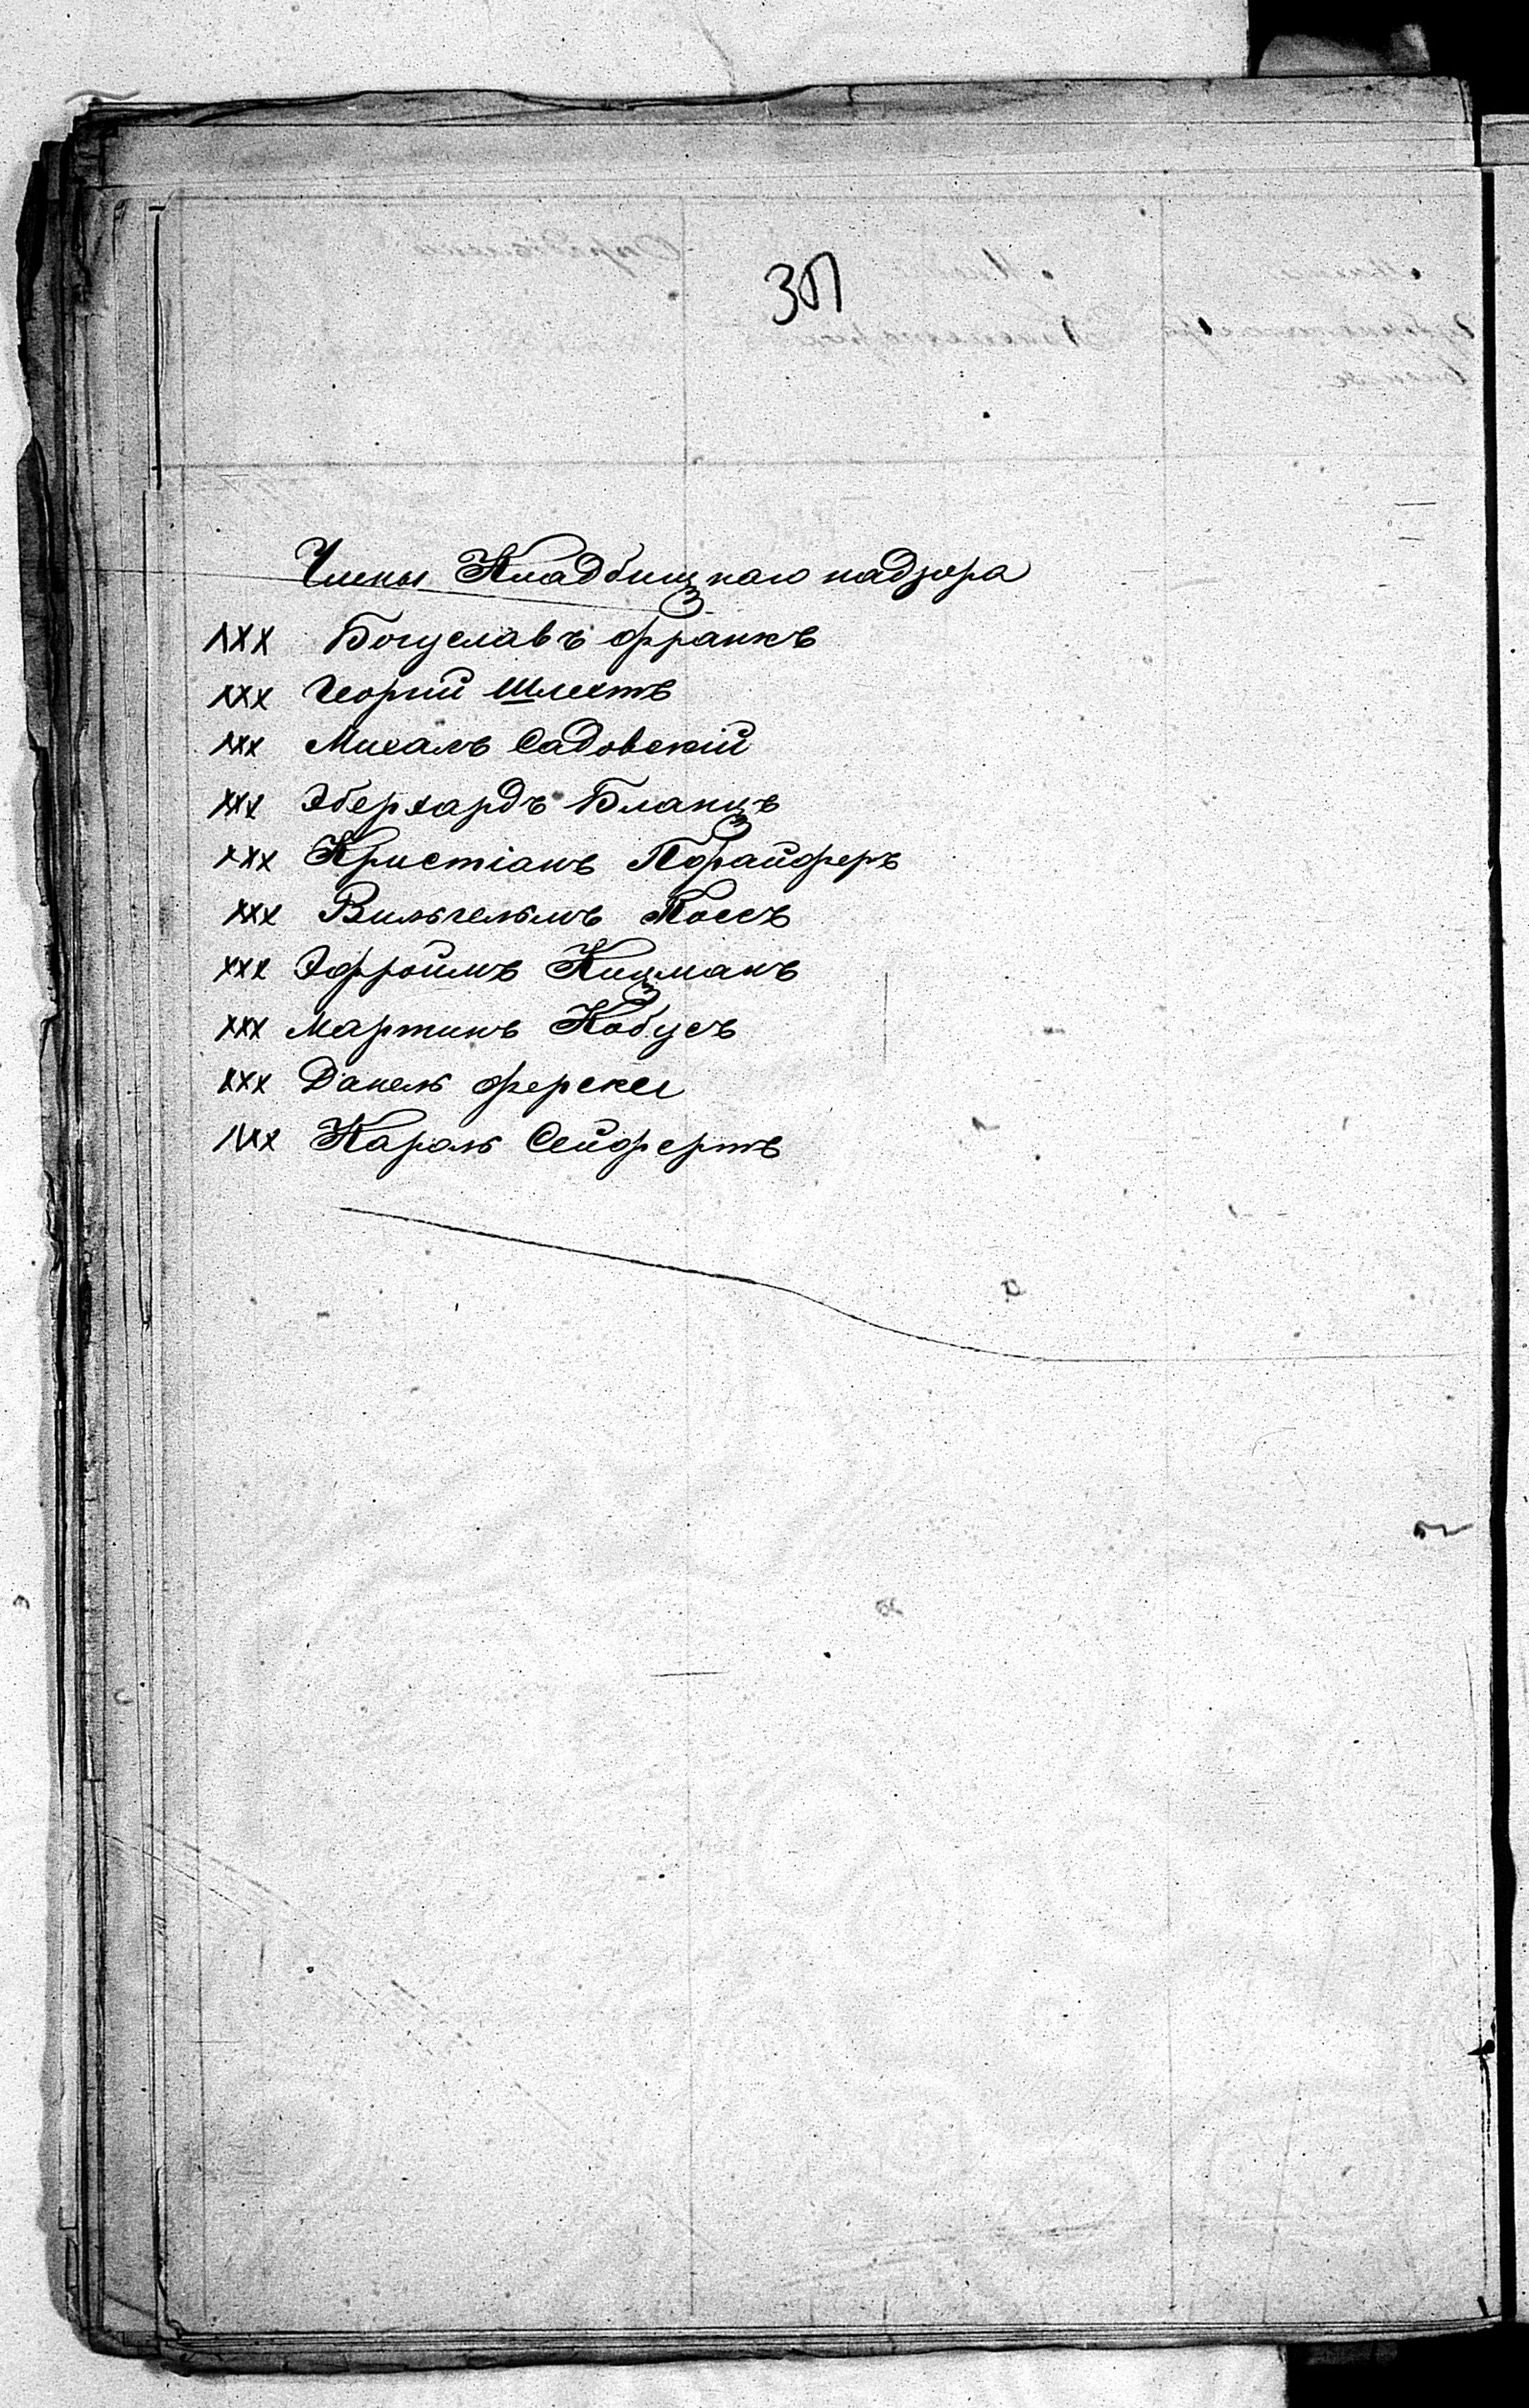 Члены Кладбищнаго надзора
ХХХ Богуславъ Франкъ
ХХХ Георгий Шлехтъ
ХХХ Михалъ Садовскій
ХХХ Эберхардъ Бланцъ
ХХХ Кристіанъ Пфайферъ
ХХХ Вильгельмъ Коссъ
ХХХ Эфроимъ Кицманъ
ХХХ Мартинъ Кобусъ
ХХХ Данель Ферске
ХХХ Кароль Сейфертъ